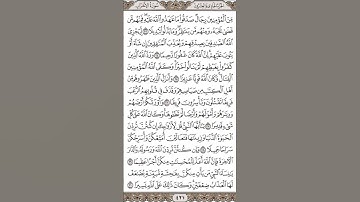 الجزء الحادي والعشرون سورة الأحزاب
من المؤمنين رجال صدقوا ما عاهدوا الله عليه فمنهم من
قضى نحبه ومنهم من ينتظر وما بدلوا تبديلا ٢٣ ليجزي
الله الصادقين بصدقهم ويعذب المنافقين إن شاء أو يتوب
عليهم إن الله كان غفورا رحيما ٢٤ ورد الله الذين
كفروا بغيظهم لم ينالوا خيرا وكفى الله المؤمنين
القتال وكان الله قويا عزيزا ٢٥ وأنزل الذين ظاهروهم من
أهل الكتاب من صياصيهم وقذف في قلوبهم الرعب
فريقا تقتلون وتأسرون فريقا ٢٦ وأورثكم أرضهم
وديارهم وأموالهم وأرضا لم تطئوها وكان الله على كل
شيء قديرا ٢٧ يا أيها النبي قل لأزواجك إن كنتن تردن
الحياة الدنيا وزينتها فتعالين أمتعكن وأسرحكن
سراحا جميلا ٢٨ وإن كنتن تردن الله ورسوله والدار
الآخرة فإن الله أعد للمحسنات منكن أجرا عظيما ٢٩
يا نساء النبي من يأت منكن بفاحشة مبينة يضاعف
لها العذاب ضعفين وكان ذلك على الله يسيرا ٣٠
٤٢١